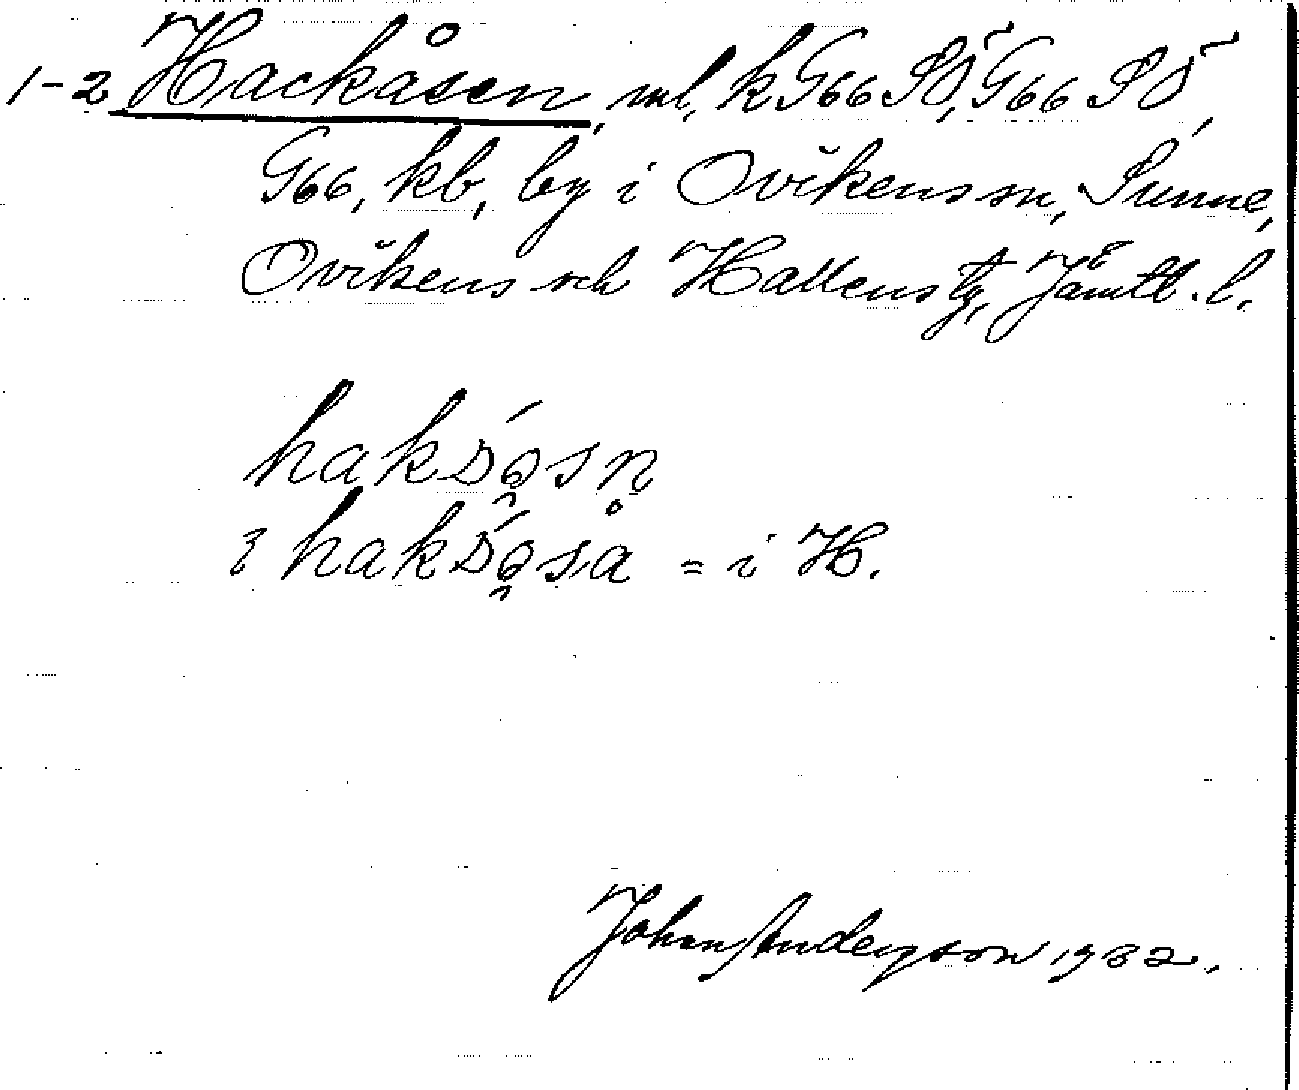 1-2 Hackåsen, ml, k G66 SÖ, G66 SÖ,
G66, kb, by i Ovikens sn, Sunne,
Ovikens och Hallens tg, Jämtl. l.
haks
haks = i H.
Johan Anderson 1932.